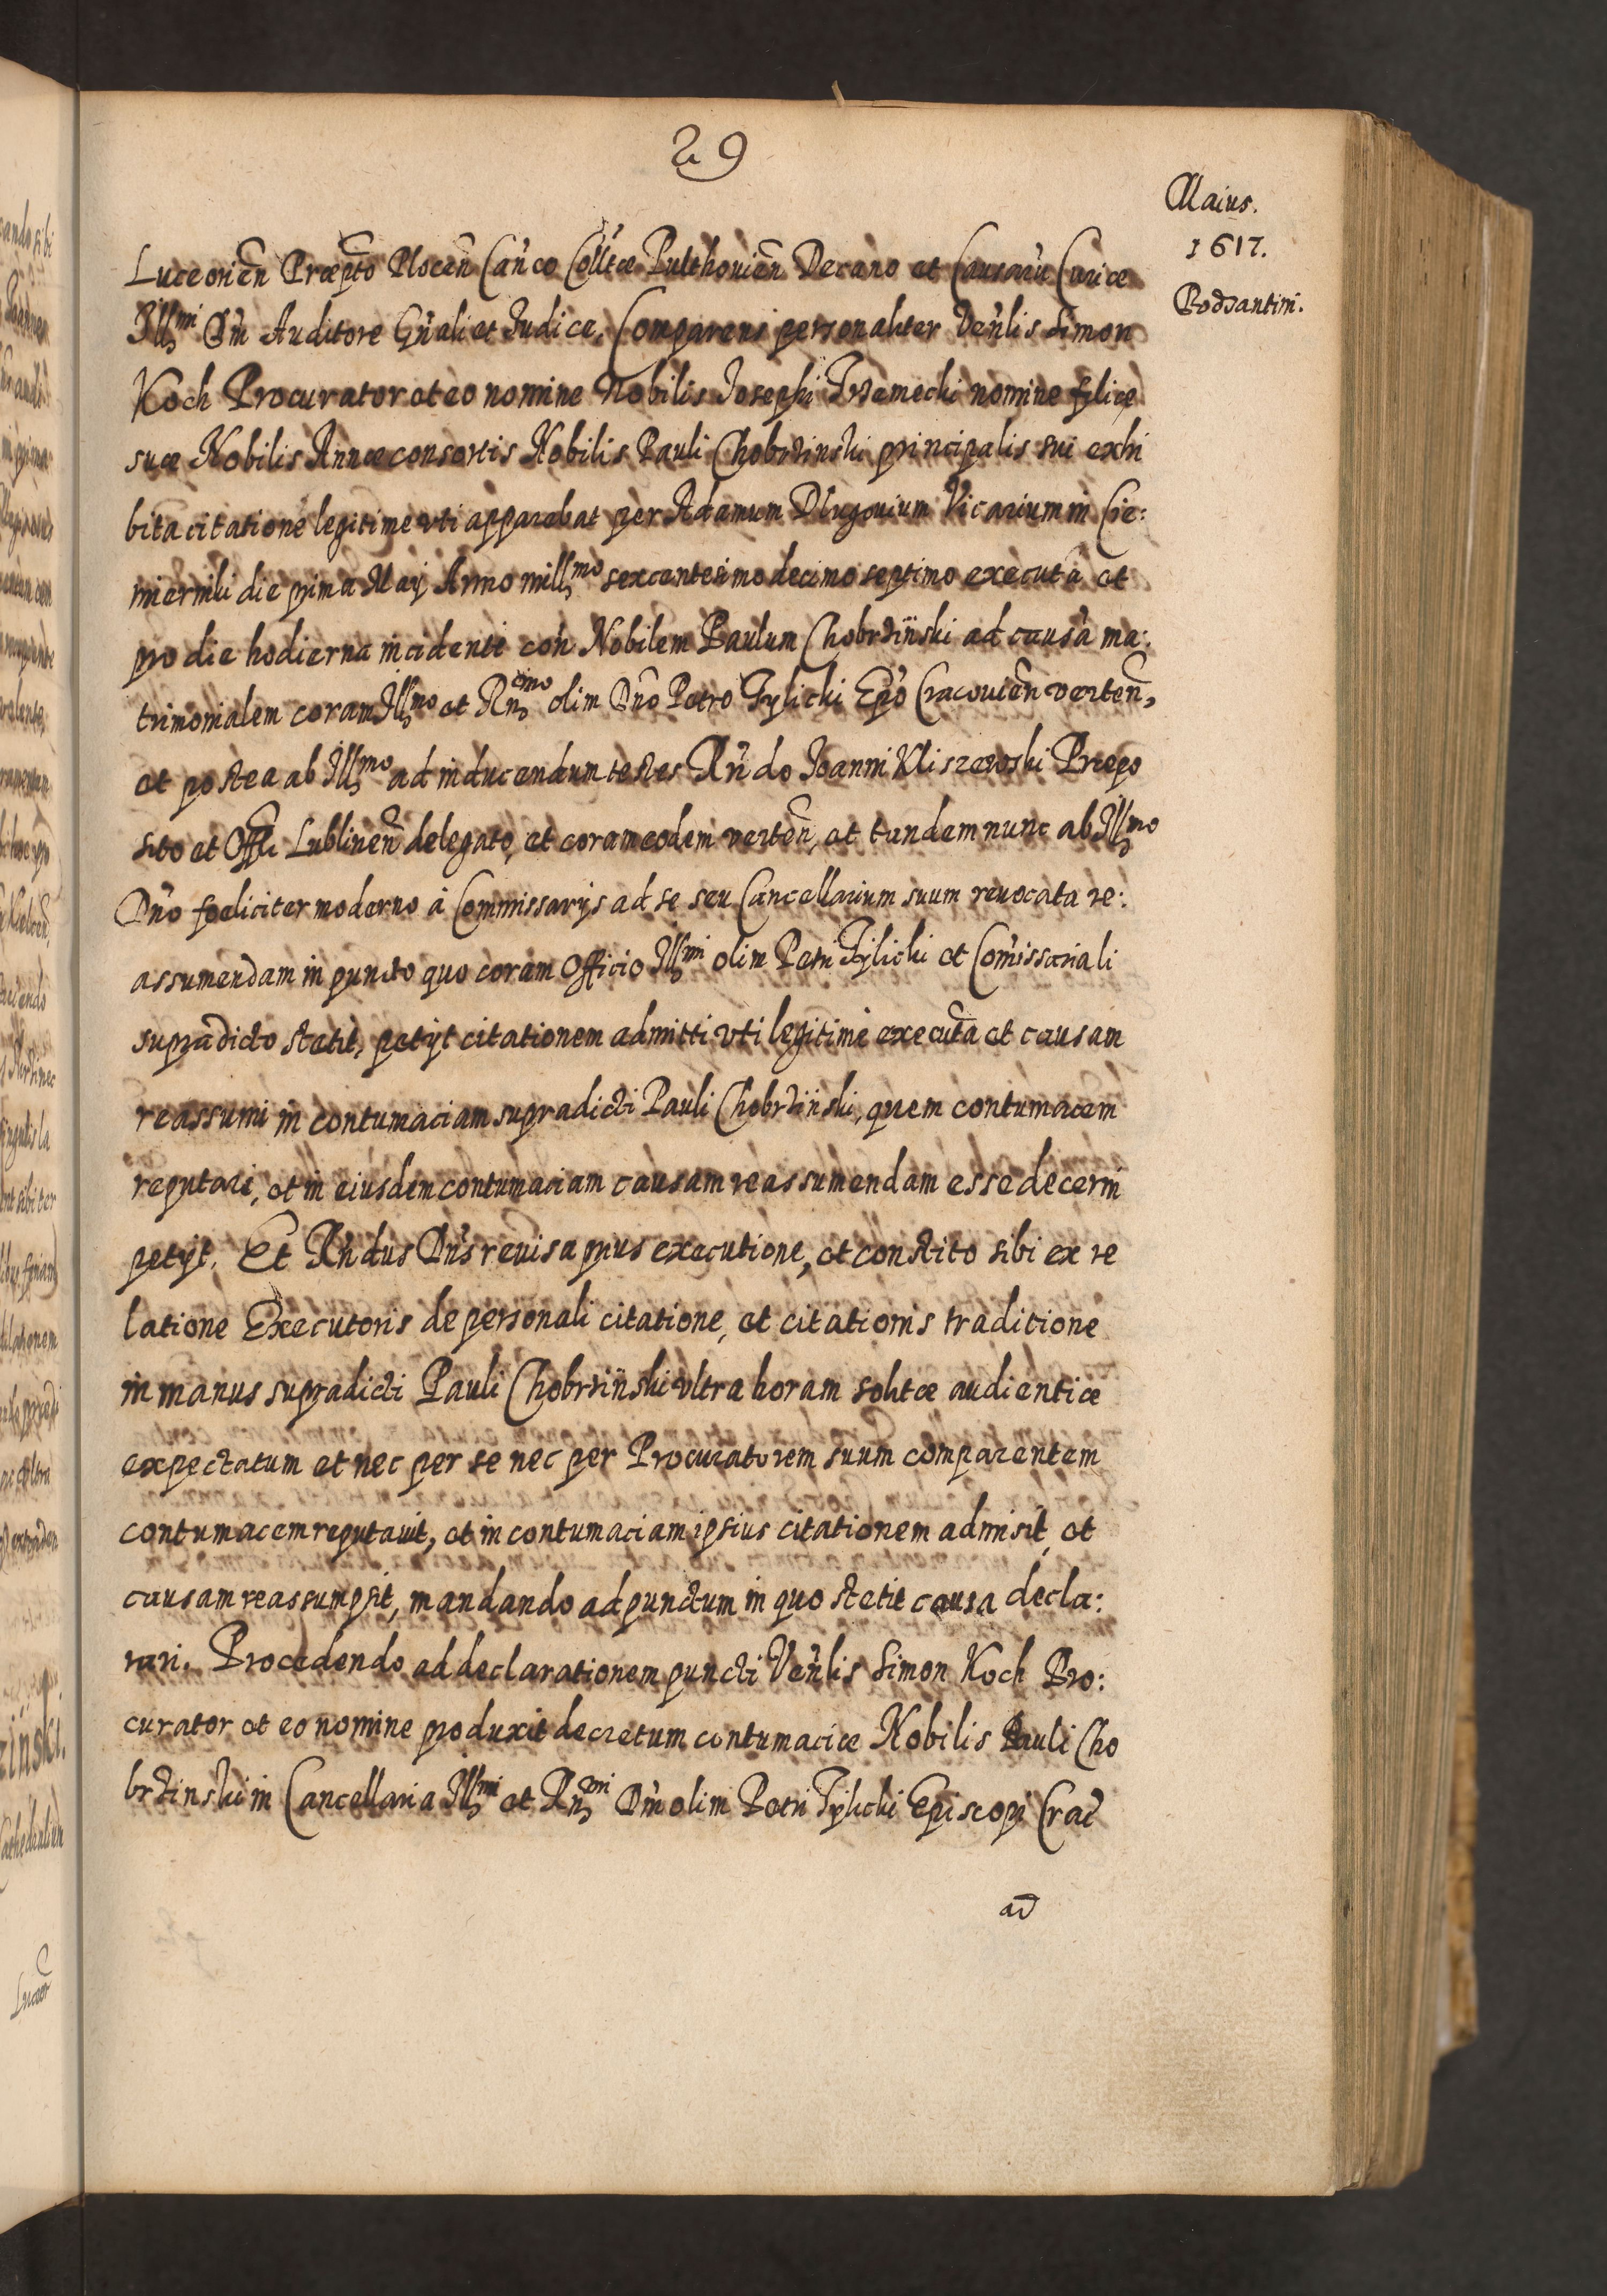 29
Maius.
1617.
Bodzantini.
Luceorien̄ Præpt̄o Plocen̄ Can̄co Coll̄tæ Pulthouien̄ Decano et Causarū Curiæ
Illmi Dn̄i Auditore Gn̄ali et Iudice. Comparens personaliter Ven̄lis Simon
Koch Procurator et eo nomine Nobilis Iosephi Trzemecki nomine filiæ
suæ Nobilis Annæ consortis Nobilis Pauli Chobrzinski principalis sui exhi
bita citatione legitime vti apparebat per Adamum Dlugouium Vicarium in Cie:
miernili die prima Maij Anno millmo sexcentesimo decimo septimo executa et
pro die hodierna incidenti con̄ Nobilem Paulum Chobrziński ad causā ma:
trimonialem coram Illmo et Rn̄mo olim Dn̄o Petro Tylicki Ep̄o Cracouien̄ verten̄,
et postea ab Illmo ad inducendum testes Rn̄do Ioanni Kliszewski Præpo
sito et Offl̄i Lublinen̄ delegato, et coram eodem verten̄, et tandem nunc ab Illmo
Dn̄o fœliciter moderno à Commissarijs ad se seu Cancellarium suum reuocata re:
assumendam in puncto quo coram Officio Illmi olim Petri Tylicki et Com̄issariali
supradicto stetit, petijt citationem admitti vti legitime executā et causam
reassumi in contumaciam supradicti Pauli Chobrziński, quem contumacem
reputari, et in eiusdem contumaciam causam reassumendam esse decerni
petijt. Et Rn̄dus Dn̄s reuisa prius executione, et constito sibi ex re
latione Executoris de personali citatione, et citationis traditione
in manus supradicti Pauli Chobrziński vltra horam solitæ audientiæ
expectatum et nec per se nec per Procuratorem suum comparentem
contumacem reputauit, et in contumaciam ipsius citationem admisit, et
causam reassumpsit, mandando ad punctum in quo stetit causa decla:
rari. Procedendo ad declarationem puncti Ven̄lis Simon Koch Pro:
curator et eo nomine produxit decretum contumaciæ Nobilis Pauli Cho
brzinski in Cancellaria Illmi et Rn̄mi Dn̄i olim Petri Tylicki Episcopi Crac̄
ad